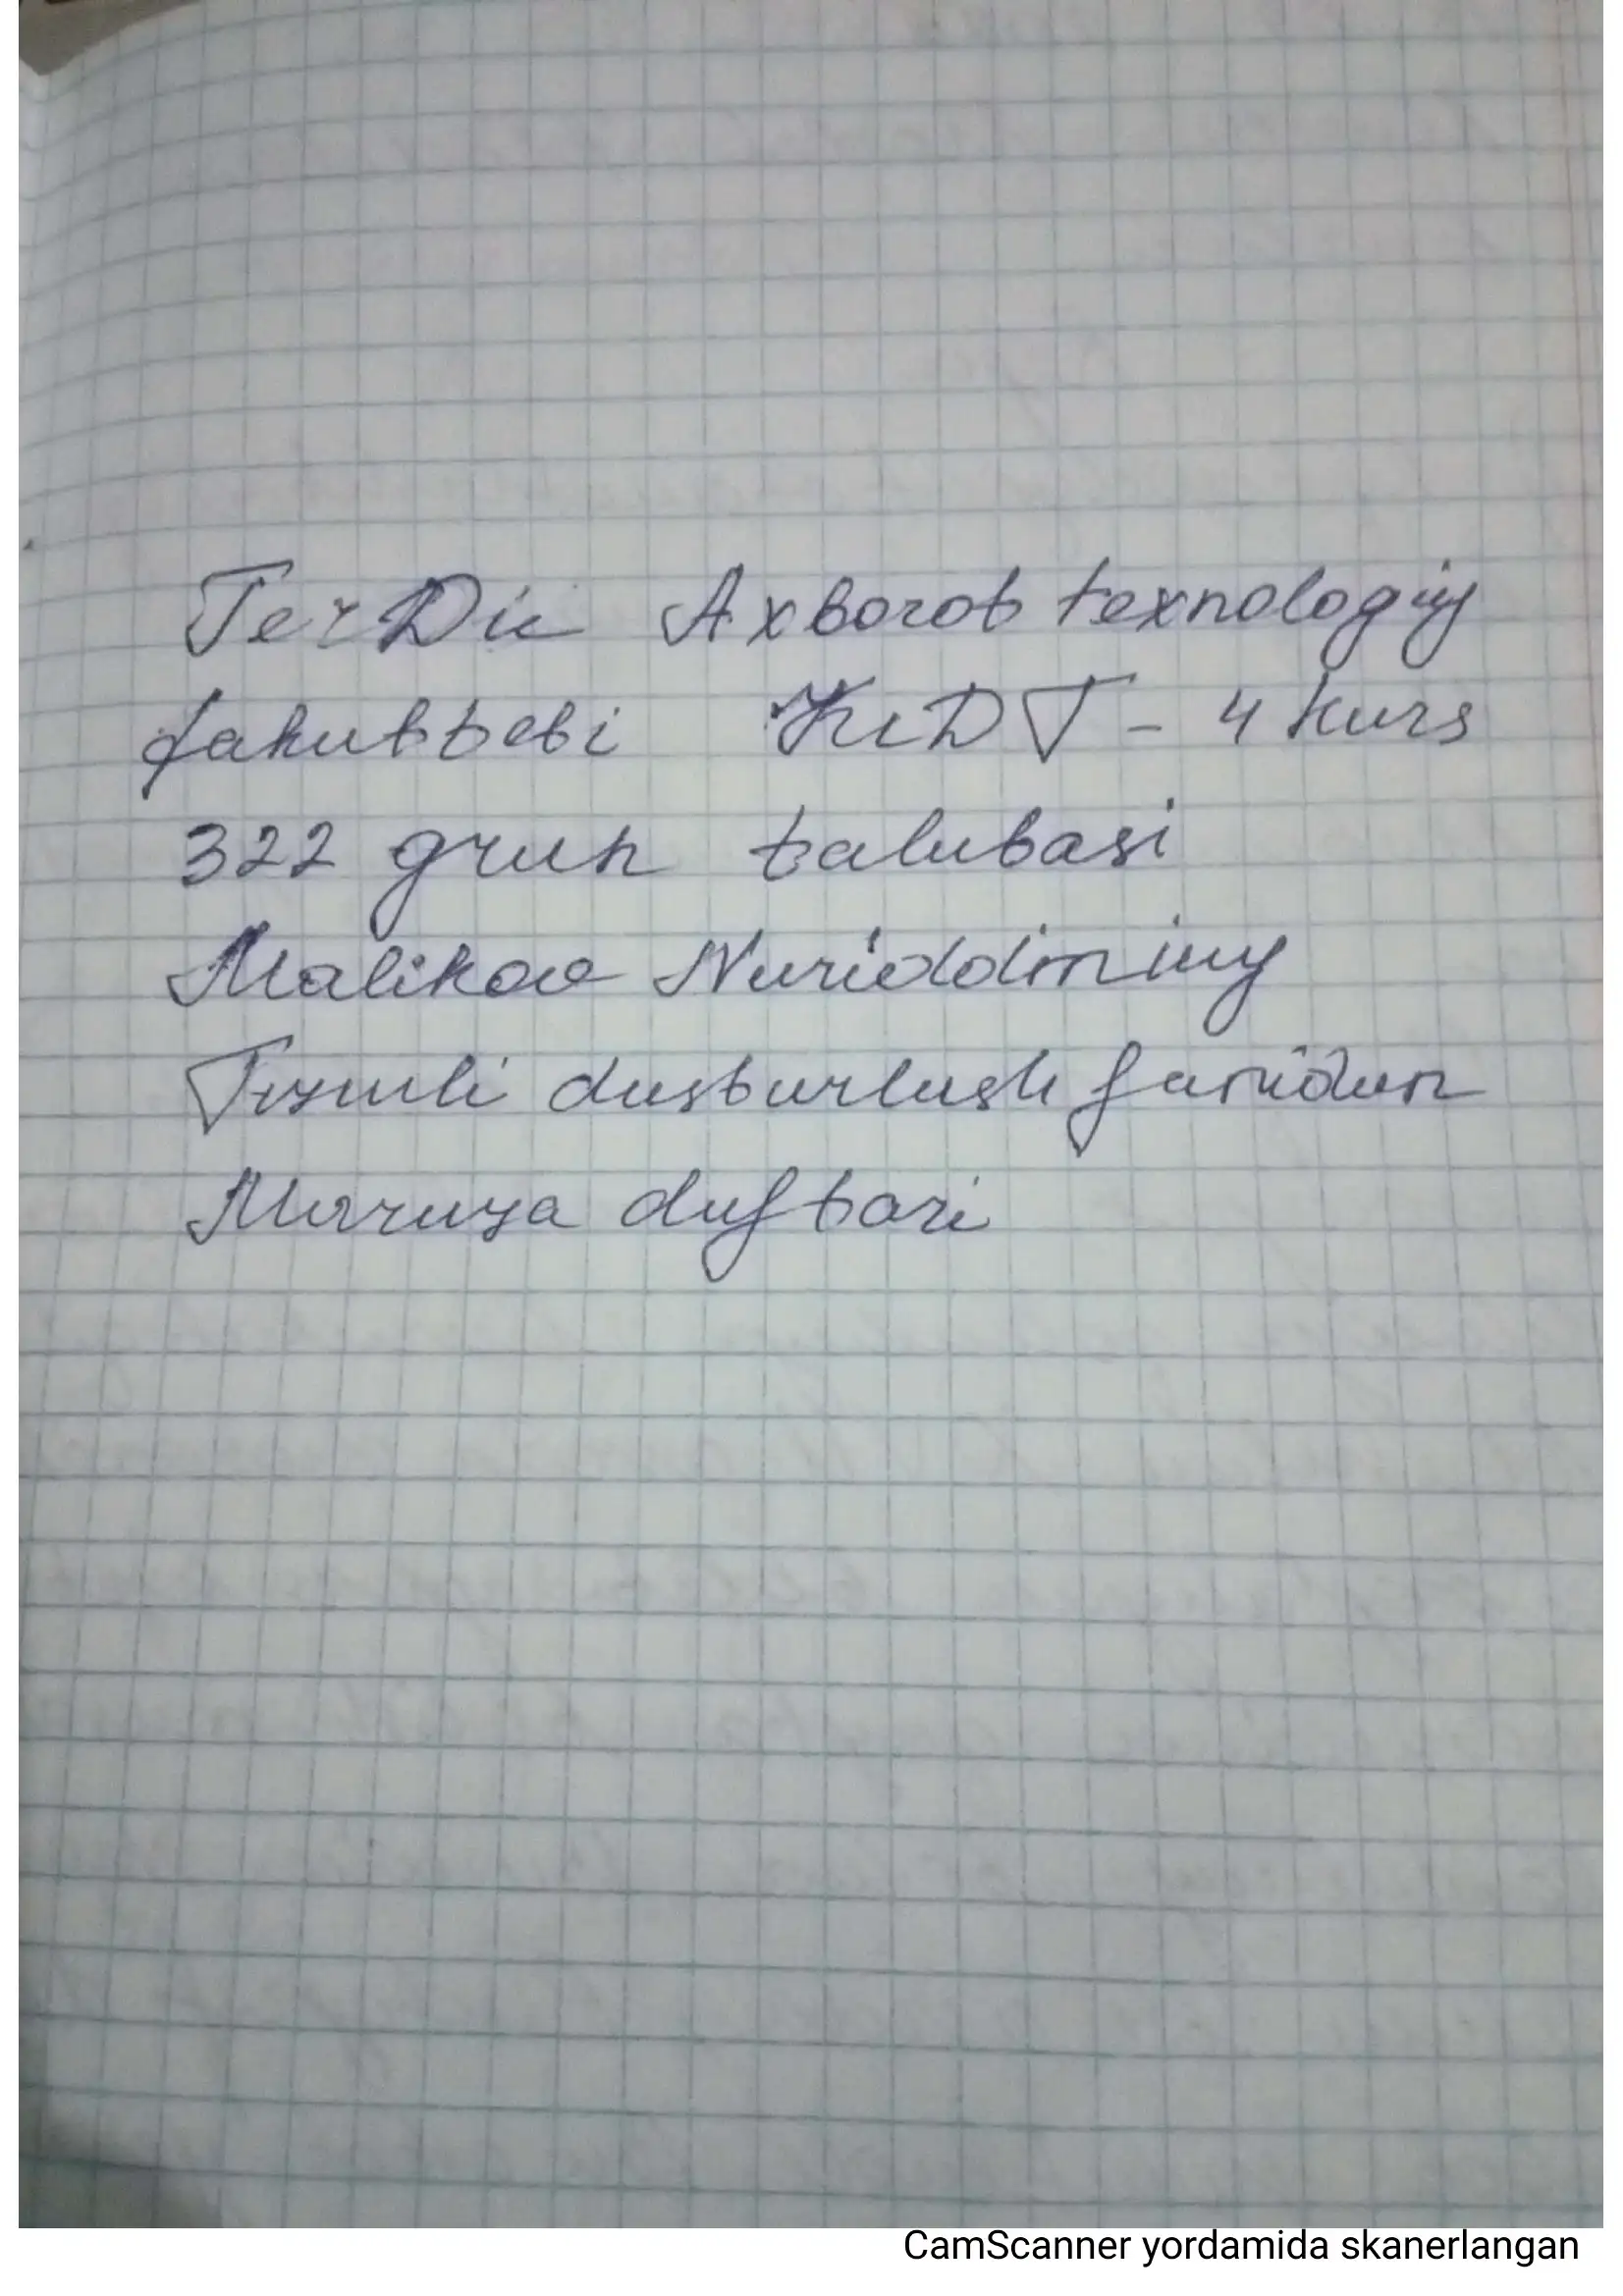 TerDU Axborot texnologiy
fakultteti KIDT - 4 kurs
322 gruh talabasi
Malikov Nuriddinning
Tizimli dasturlash fanidan
Maruza daftari
CamScanner yordamida skanerlangan